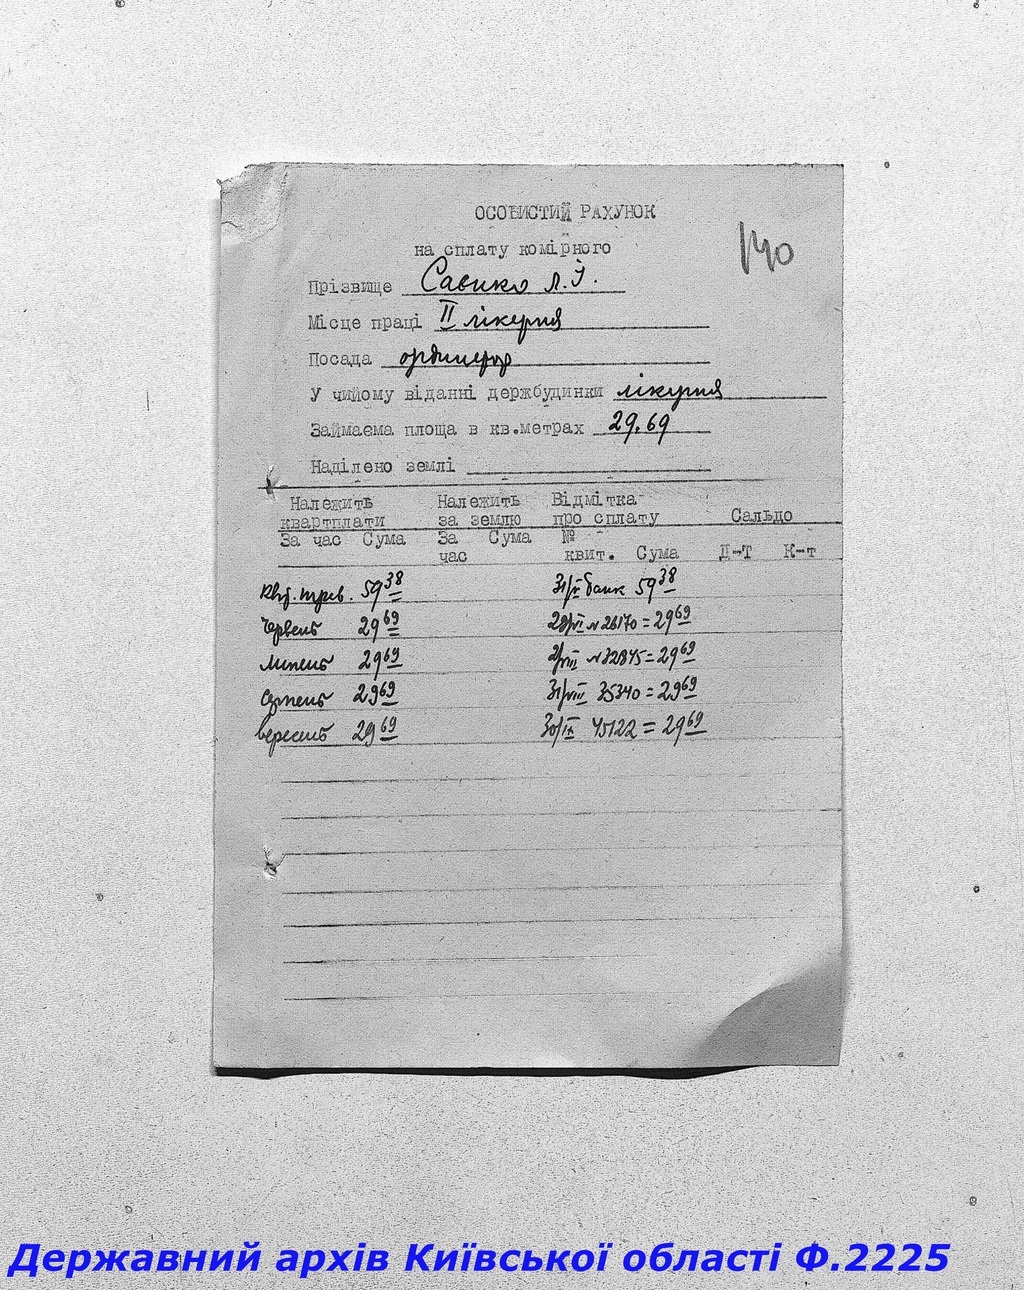 ОСОБИСТИЙ РАХУНОК
140
на сплату комірного
Прізвище Савико Л.І.
Місце праці II лікерня
Посада ординатор
У чийому віданні держбудинки лікерня
Займаема площа в кв.метрах 29.69
Наділено землі
Належить Належить Відмітка
квартплати за землю про сплату Сальдо
За час Сума За Сума №
час квит. Сума Д-т К-т
59 38 31/V банк 59 38
червень 29 69 28/VI № 26170 = 29 69
липень 29 69 2/VIII № 32845 = 29 69
серпень 29 69 31/VIII 35340 = 29 69
вересень 29 69 30/IX 45122 = 29 69
Державний архів Київської області Ф.2225